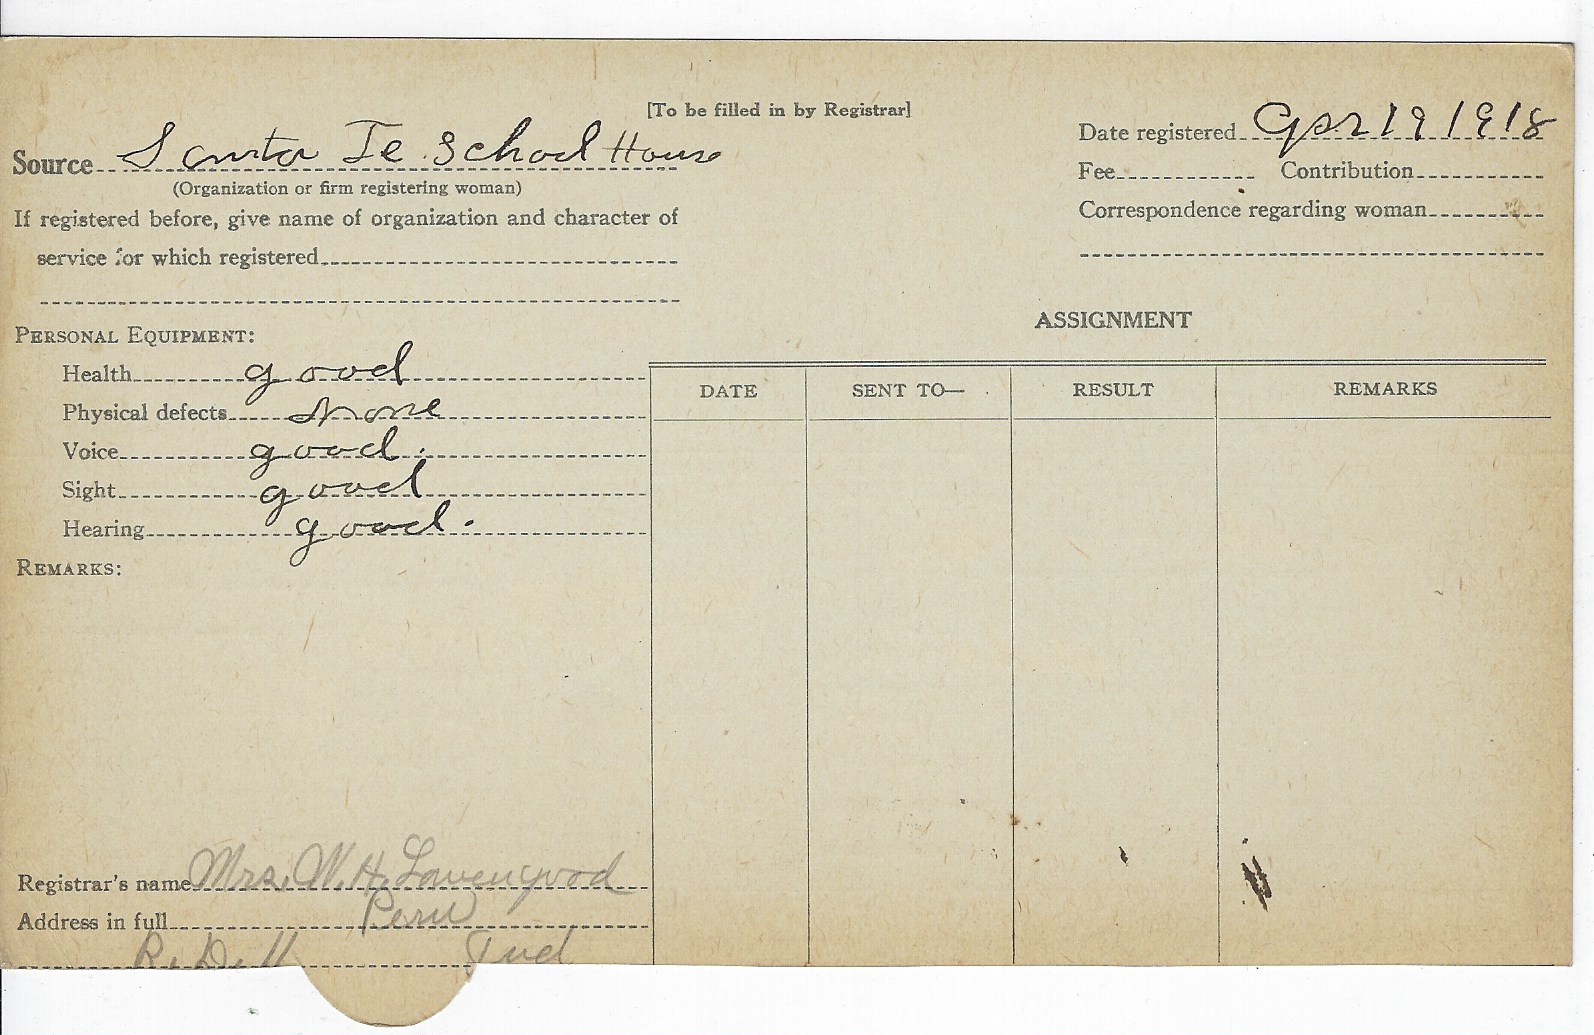 [To be filled in by Registrar]
Source Santa Fe School House
(Organization or firm registering woman)
If registered before, give name of organization and character of
service for which registered
Date registered Apr 19 1918
Fee Contribution
Correspondence regarding woman
PERSONAL EQUIPMENT:
Health good
Physical defects none
Voice good.
Sight good
Hearing good.
REMARKS:
ASSIGNMENT
DATE SENT TO— RESULT REMARKS
Registrar's name Mrs. W. H. Lovengood
Address in full Peru
R. D. Ind